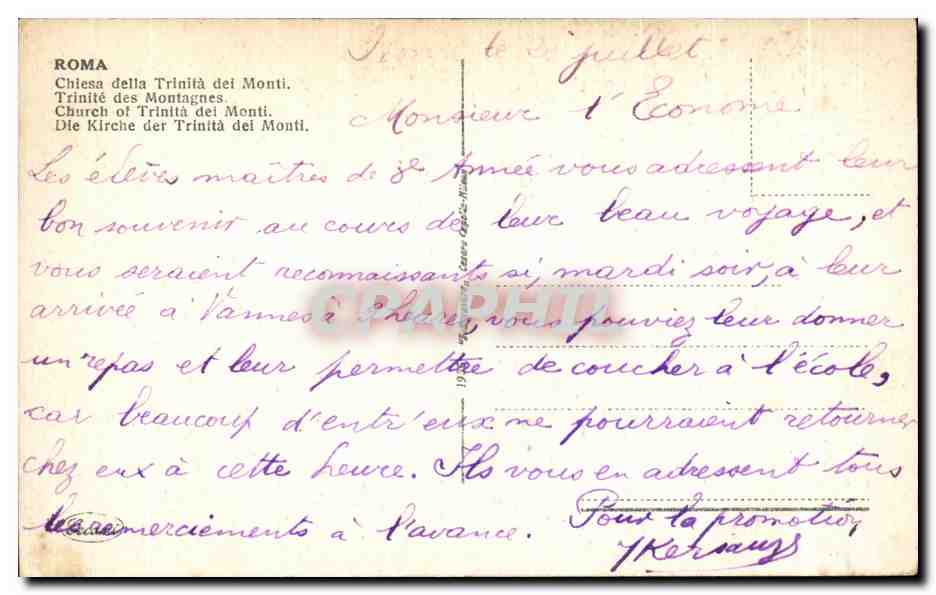 ROMA
Chiesa della Trinità dei Monti.
Trinité des Montagnes.
Church of Trinità dei Monti.
Die Kirche der Trinità dei Monti.
le 20 juillet
Monsieur l'Econome
Les élèves maîtres de 3e Année vous adressent leur
bon souvenir au cours de leur beau voyage, et
vous seraient reconnaissants si, mardi soir, à leur
arrivée à Vannes à heures vous pouviez leur donner
un repas et leur permettre de coucher à l'école,
car beaucoup d'entr'eux ne pourraient retourner
chez eux à cette heure. Ils vous en adressent tous
les remerciements à l'avance.
Pour la promotion
CPAPHIL
Cesare Capello-Milano